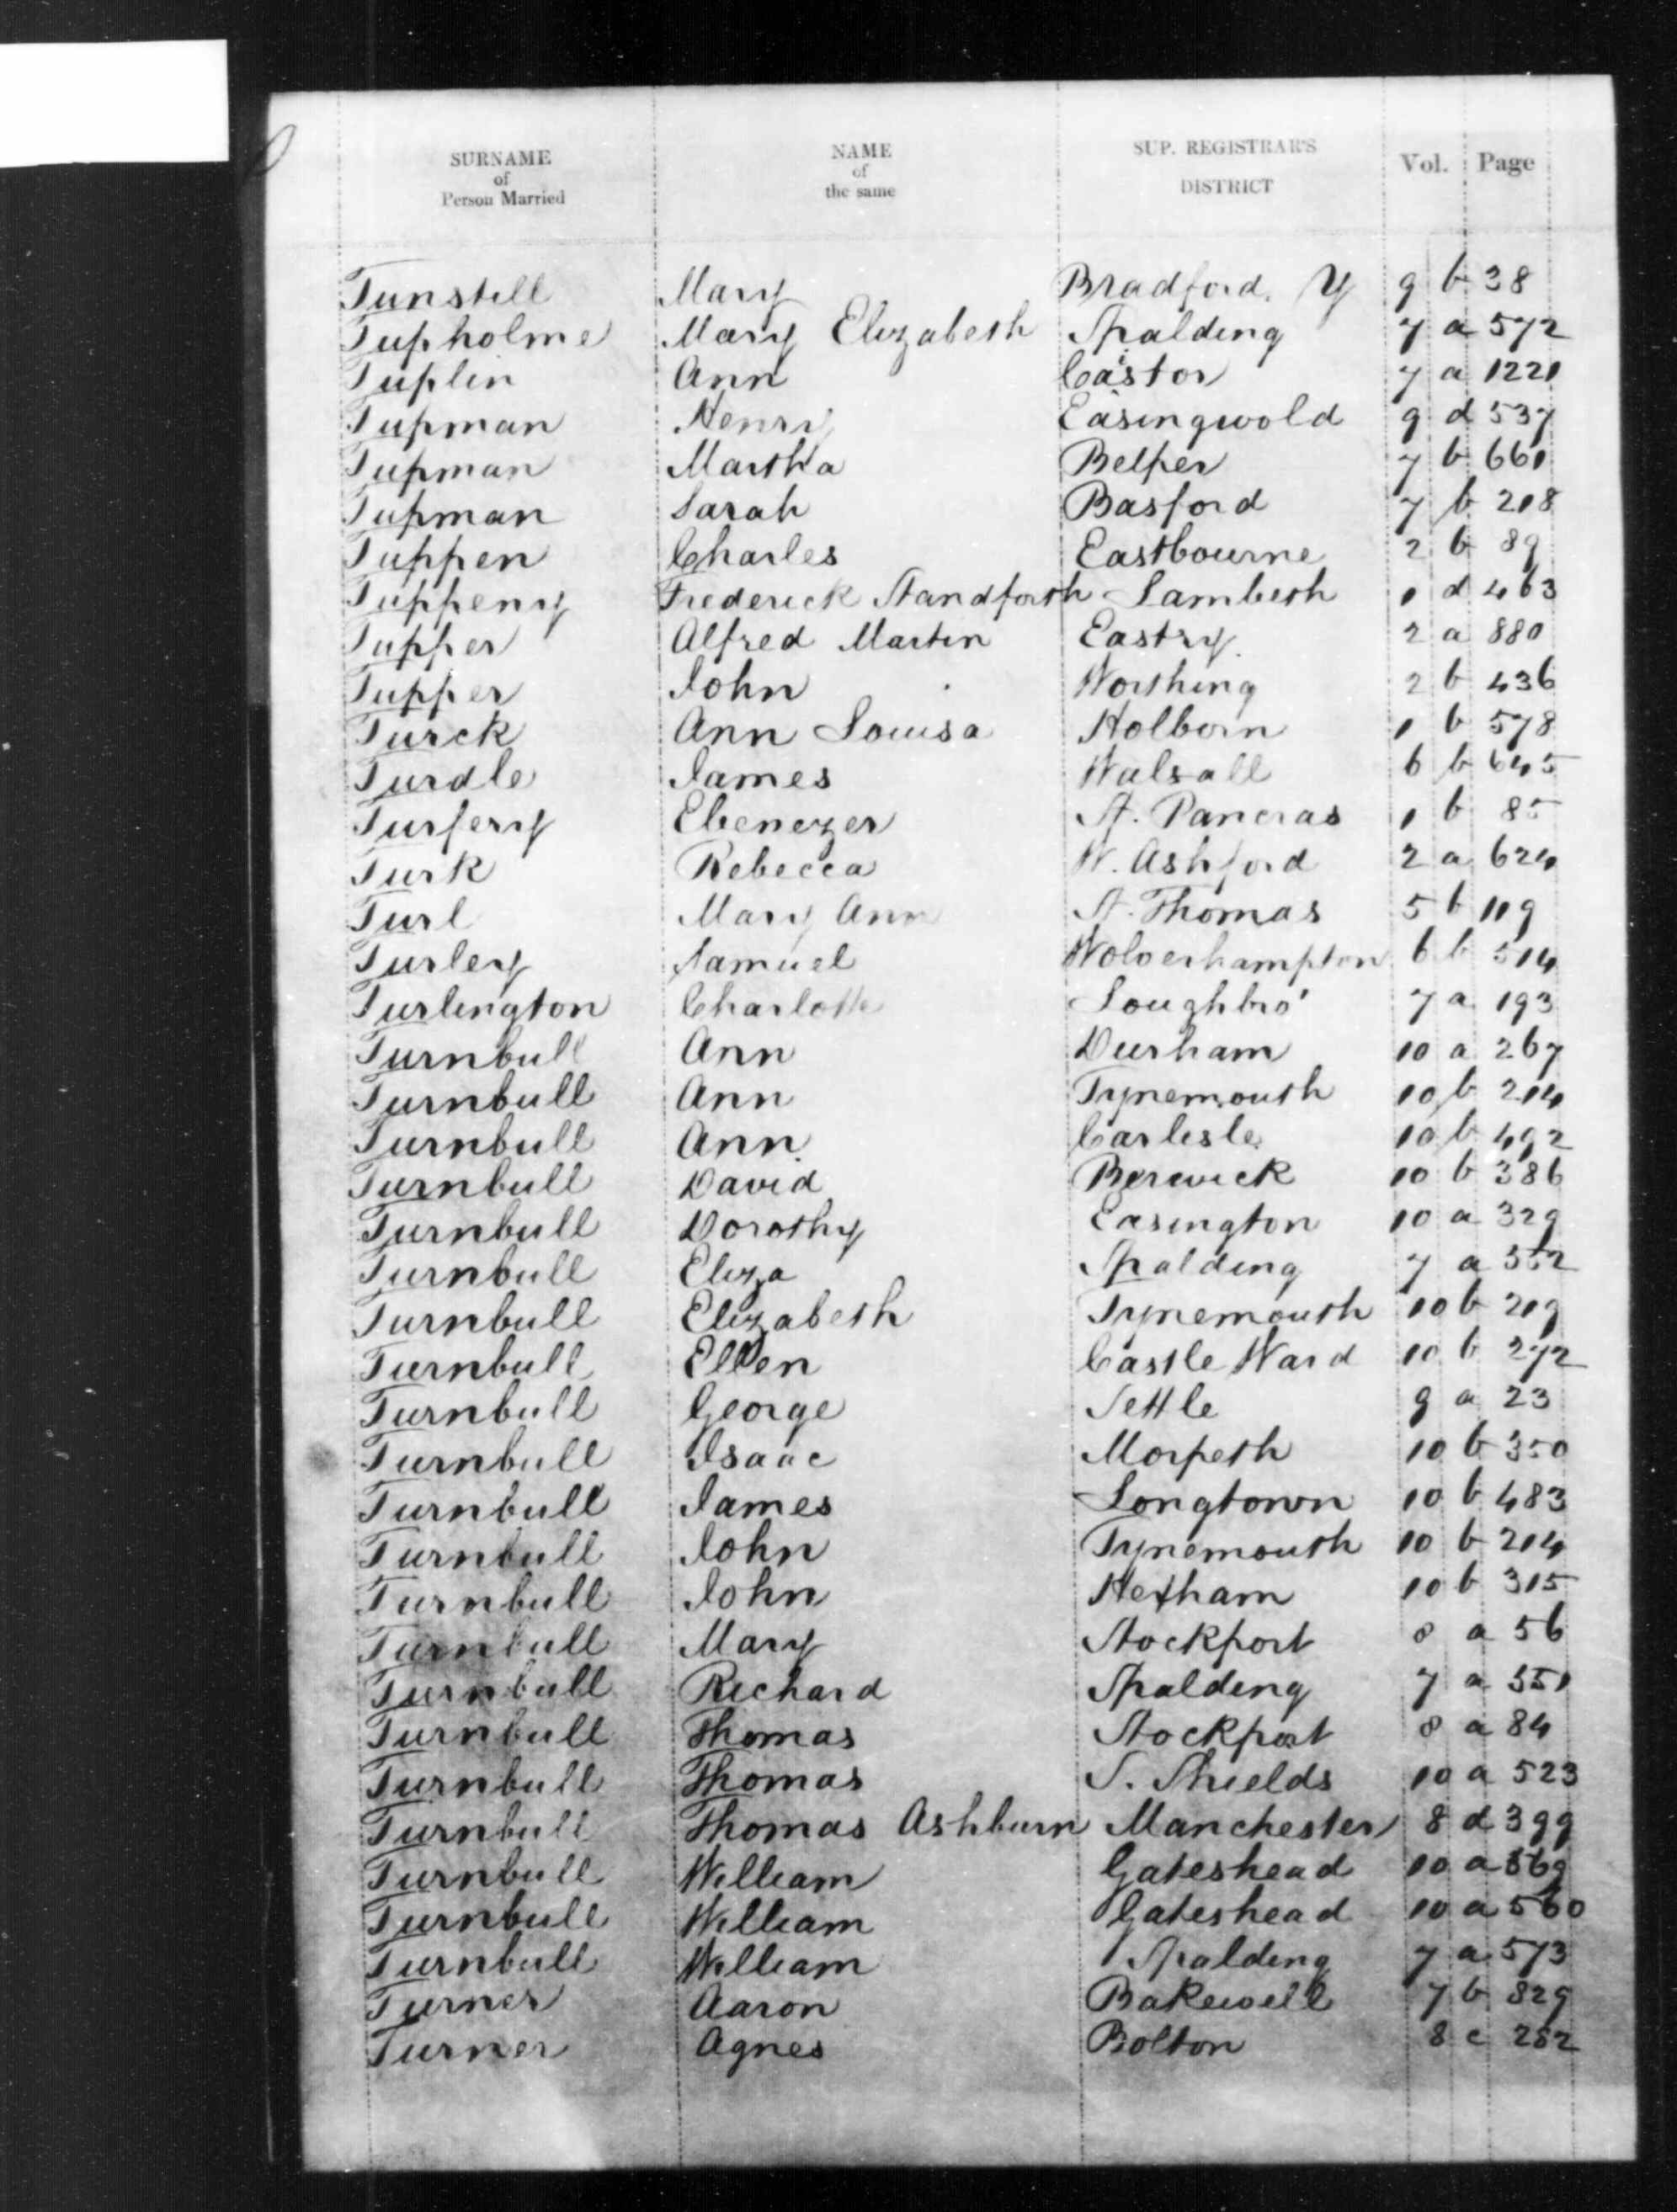 SURNAME of Person Married NAME of the same SUP. REGISTRAR'S DISTRICT Vol. Page
Tunstill Mary Bradford, Y 9 b 38
Tupholme Mary Elizabeth Spalding 7 a 572
Tuplin Ann Castor 7 a 1221
Tupman Henry Easingwold 9 d 537
Tupman Martha Belper 7 b 661
Tupman Sarah Basford 7 b 218
Tuppen Charles Eastbourne 2 b 89
Tuppeny Frederick Standforth Lambeth 1 d 463
Tupper Alfred Martin Eastry 2 a 880
Tupper John Worthing 2 b 436
Turck Ann Louisa Holborn 1 b 578
Turdle James Walsall 6 b 645
Turfery Ebenezer St. Pancras 1 b 85
Turk Rebecca W. Ashford 2 a 624
Turl Mary Ann St. Thomas 5 b 119
Turley Samuel Wolverhampton 6 b 514
Turlington Charlotte Loughbro' 7 a 193
Turnbull Ann Durham 10 a 267
Turnbull Ann Tynemouth 10 b 214
Turnbull Ann Carlisle 10 b 492
Turnbull David Berwick 10 b 386
Turnbull Dorothy Easington 10 a 329
Turnbull Eliza Spalding 7 a
Turnbull Elizabeth Tynemouth 10 b 219
Turnbull Ellen Castle Ward 10 b 272
Turnbull George Settle 9 a 23
Turnbull Isaac Morpeth 10 b 350
Turnbull James Longtown 10 b 483
Turnbull John Tynemouth 10 b 214
Turnbull John Hexham 10 b 315
Turnbull Mary Stockport 8 a 56
Turnbull Richard Spalding 7 a 551
Turnbull Thomas Stockport 8 a 84
Turnbull Thomas S. Shields 10 a 523
Turnbull Thomas Ashburn Manchester 8 d 399
Turnbull William Gateshead 10 a 569
Turnbull William Gateshead 10 a 560
Turnbull William Spalding 7 a 573
Turner Aaron Bakewell 7 b 829
Turner Agnes Bolton 8 c 282